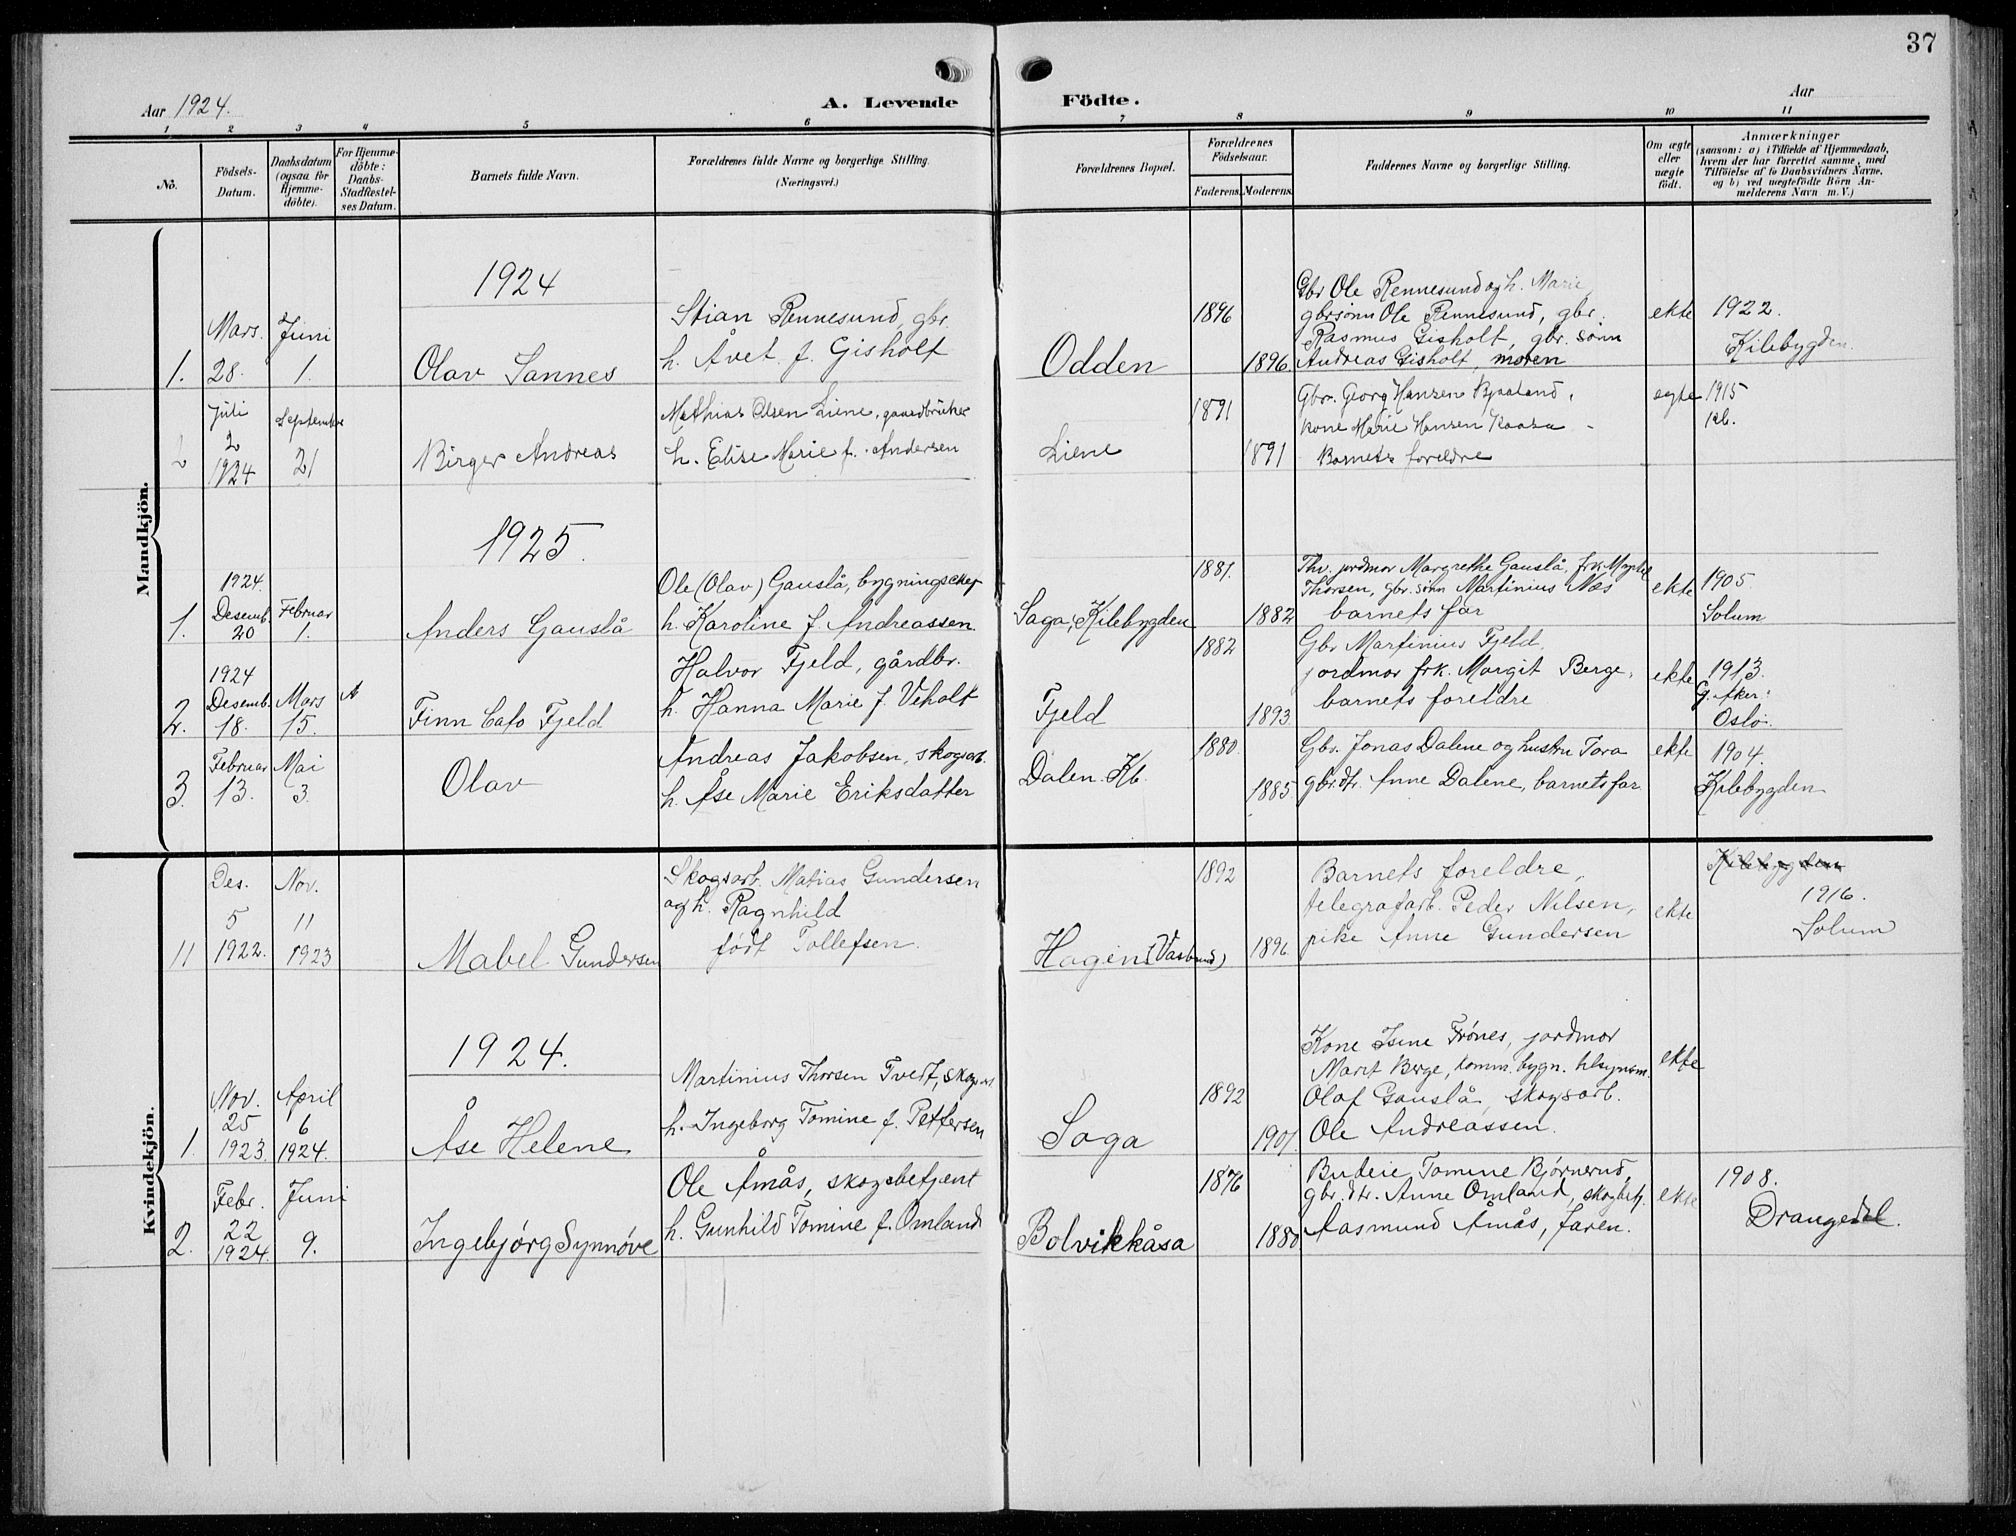 37
Aar 1924.
A. Levende Födte.
Aar
1 2 3 4 5 6 7 8 9 10 11
No.
Födsels-
Datum.
Daabsdatum
(ogsaa för
Hjemme-
döbte).
For Hjemme-
döbte:
Daabs-
Stadfæstel-
ses Datum.
Barnets fulde Navn.
Forældrenes fulde Navne og borgerlige Stilling.
(Næringsvei.)
Forældrenes Bopæl.
Forældrenes
Födselsaar.
Faderens. Moderens.
Faddernes Navne og borgerlige Stilling.
Om ægte
eller
uægte
födt.
Anmærkninger
(saasom: a) i Tilfælde af Hjemmedaab,
hvem der har forrettet samme, med
Tilföielse af to Daabsvidners Navne,
og b) ved uægtefödte Börn An-
melderens Navn m. V.)
Mandkjön.
1924
1.
Mars.
28.
Juni
1.
Olav Sannes
Stian Rennesund, gbr.
h. Åvet f. Gisholt
Odden
1896
1896
Gbr Ole Rennesund og h. Marie,
gbrsønn Ole Rennesund, gbr.
Rasmus Gisholt, gbr. sønn
Andreas Gisholt, moren
ekte
1922.
Kilebygden.
2
Juli
2
1924
September
21
Birger Andreas
Mathias Olsen Liene, gaardbruker
h. Elise Marie f. Andersen
Liene
1891
1891
Gbr. Georg Hansen Bjaaland,
kone Marie Hansen Kaasa
Barnets foreldre
egte
1915
Kb.
1925.
1.
1924.
Desemb.
20
Februar
1.
Anders Gauslå
Ole (Olav) Gauslå, bygningsekspr
h. Karoline f. Andreassen.
Saga, Kilebygden
1881.
1882
Thv. jordmor Margrethe Gauslå, frk. Magnhil
Thorsen, gbr. sønn Martinius Næs
barnets far
ekte
1905
Solum
2.
1924
Desemb.
18.
Mars
15.
A
Finn Cato Fjeld
Halvor Fjeld, gårdbr.
h. Hanna Marie f. Veholt
Fjeld
1882
1893
Gbr Martinius Fjeld,
jordmor frk. Margit Berge,
barnets foreldre
ekte
1913.
G. Aker:
Oslo.
3.
Februar
13.
Mai
3.
Olav
Andreas Jakobsen, skogsarb.
h. Åse Marie Eriksdatter
Dalen. Kb.
1880.
1885.
Gbr. Jonas Dalene og hustru Tora
gbr.dtr. Anne Dalene, barnets far
ekte
1904.
Kilebygden
Kvindekjön.
11
Des.
5
1922.
Nov.
11
1923
Mabel Gundersen
Skogsarb. Matias Gundersen
og h. Ragnhild
født Tollefsen.
Hagen (Vasbund)
1892
1896.
Barnets foreldre,
telegrafarb. Peder Nilsen,
pike Anne Gundersen
ekte
Kilebygden
1916.
Solum
1924.
1.
Nov.
25
1923.
April
6
1924.
Åse Helene
Martinius Thorsen Tvedt, skogsarb
h. Ingeborg Tomine f. Pettersen
Saga
1892
1901.
Kone Isene Frönes, jordmor
Marit Berge, komm. bygn. tilsynsm.
Olaf Gauslå, skogsarb.
Ole Andreassen.
ekte
2.
Febr.
22
1924.
Juni
9.
Ingebjørg Synnøve
Ole Åmås, skogsbetjent
h. Gunhild Tomine f. Omland
Bolvikkåsa
1876
1880
Budeie Tomine Bjørnerud,
gbr.dtr. Anne Omland, skogbetj.
Aasmund Åmås, faren.
ekte
1908.
Drangedal.